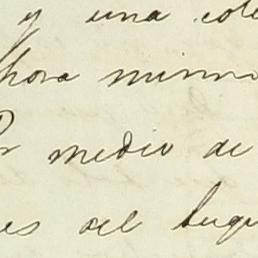 y una cole
hora mism
Por medio de
es del buqu